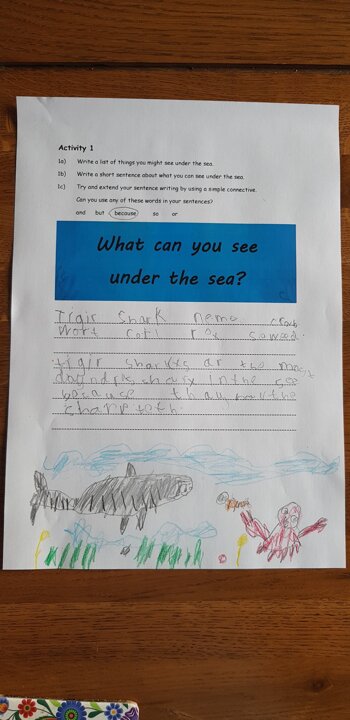 Activity 1
1a) Write a list of things you might see under the sea.
1b) Write a short sentence about what you can see under the sea.
1c) Try and extend your sentence writing by using a simple connective.
Can you use any of these words in your sentences?
and but because so or
What can you see
under the sea?
Tigir Shark nemo crab
Wort corl rox seweed
tigir sharks ar the most
shary in the see
because thay hav the
sharp teth